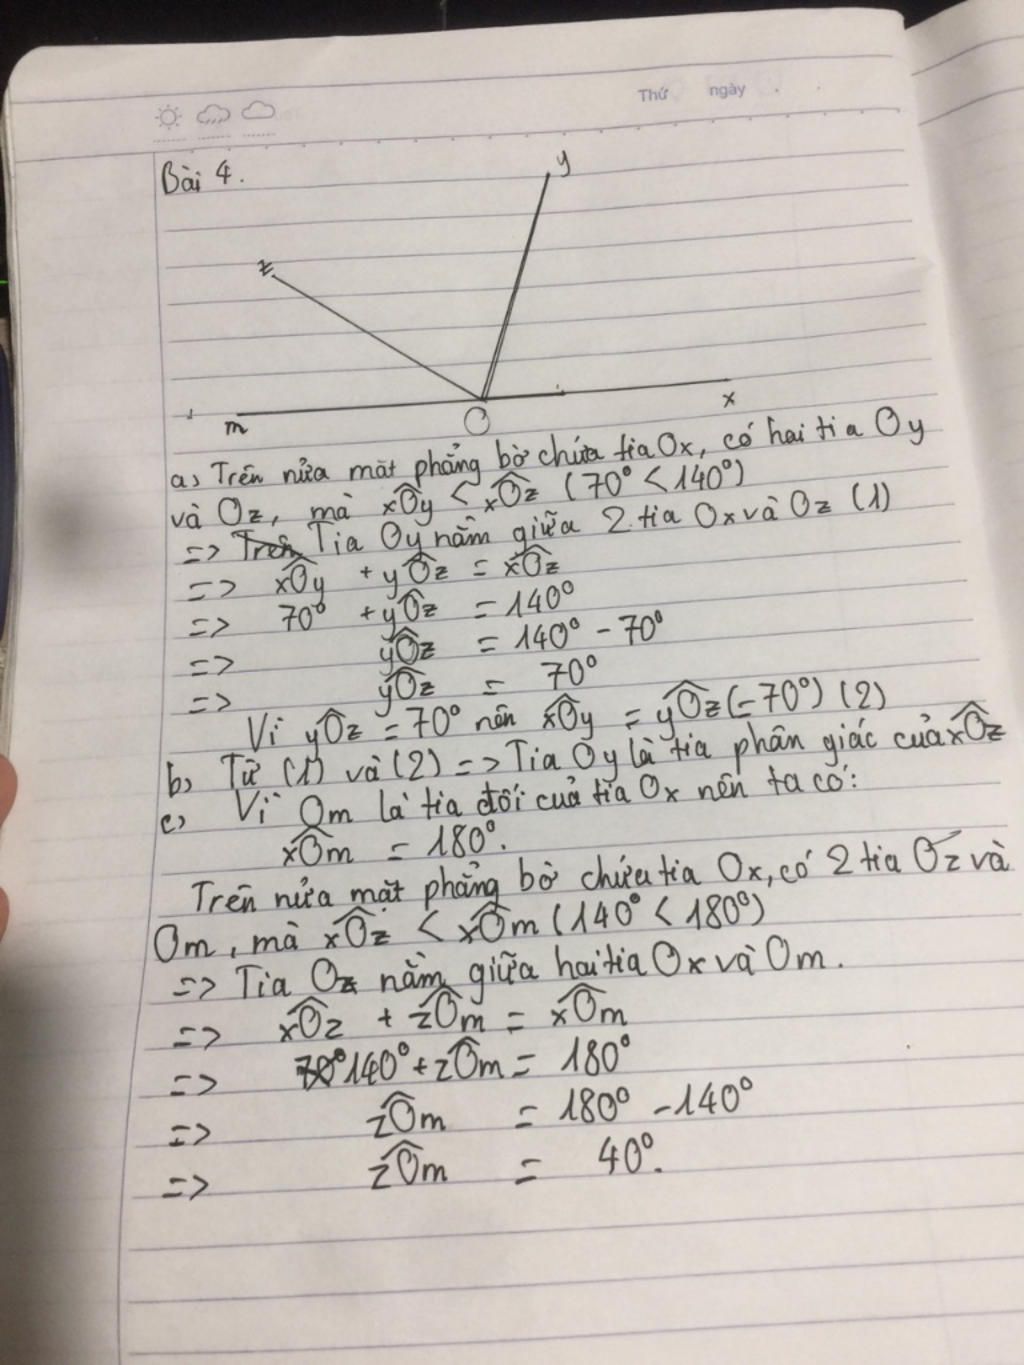 Thứ ngày
Bài 4.
y
z
m
O
x
a, Trên nửa mặt phẳng bờ chứa tia Ox, có hai tia Oy
và Oz, mà xÔy < xÔz (70° < 140°)
=> Trên Tia Oy nằm giữa 2 tia Ox và Oz (1)
=> xÔy + yÔz = xÔz
=> 70° + yÔz = 140°
=> yÔz = 140° - 70°
=> yÔz = 70°
Vì yÔz = 70° nên xÔy = yÔz (= 70°) (2)
b, Từ (1) và (2) => Tia Oy là tia phân giác của xÔz
c, Vì Om là tia đối của tia Ox nên ta có:
xÔm = 180°.
Trên nửa mặt phẳng bờ chứa tia Ox, có 2 tia Oz và
Om, mà xÔz < xÔm (140° < 180°)
=> Tia Oz nằm giữa hai tia Ox và Om.
=> xÔz + zÔm = xÔm
=> 70° 140° + zÔm = 180°
=> zÔm = 180° - 140°
=> zÔm = 40°.